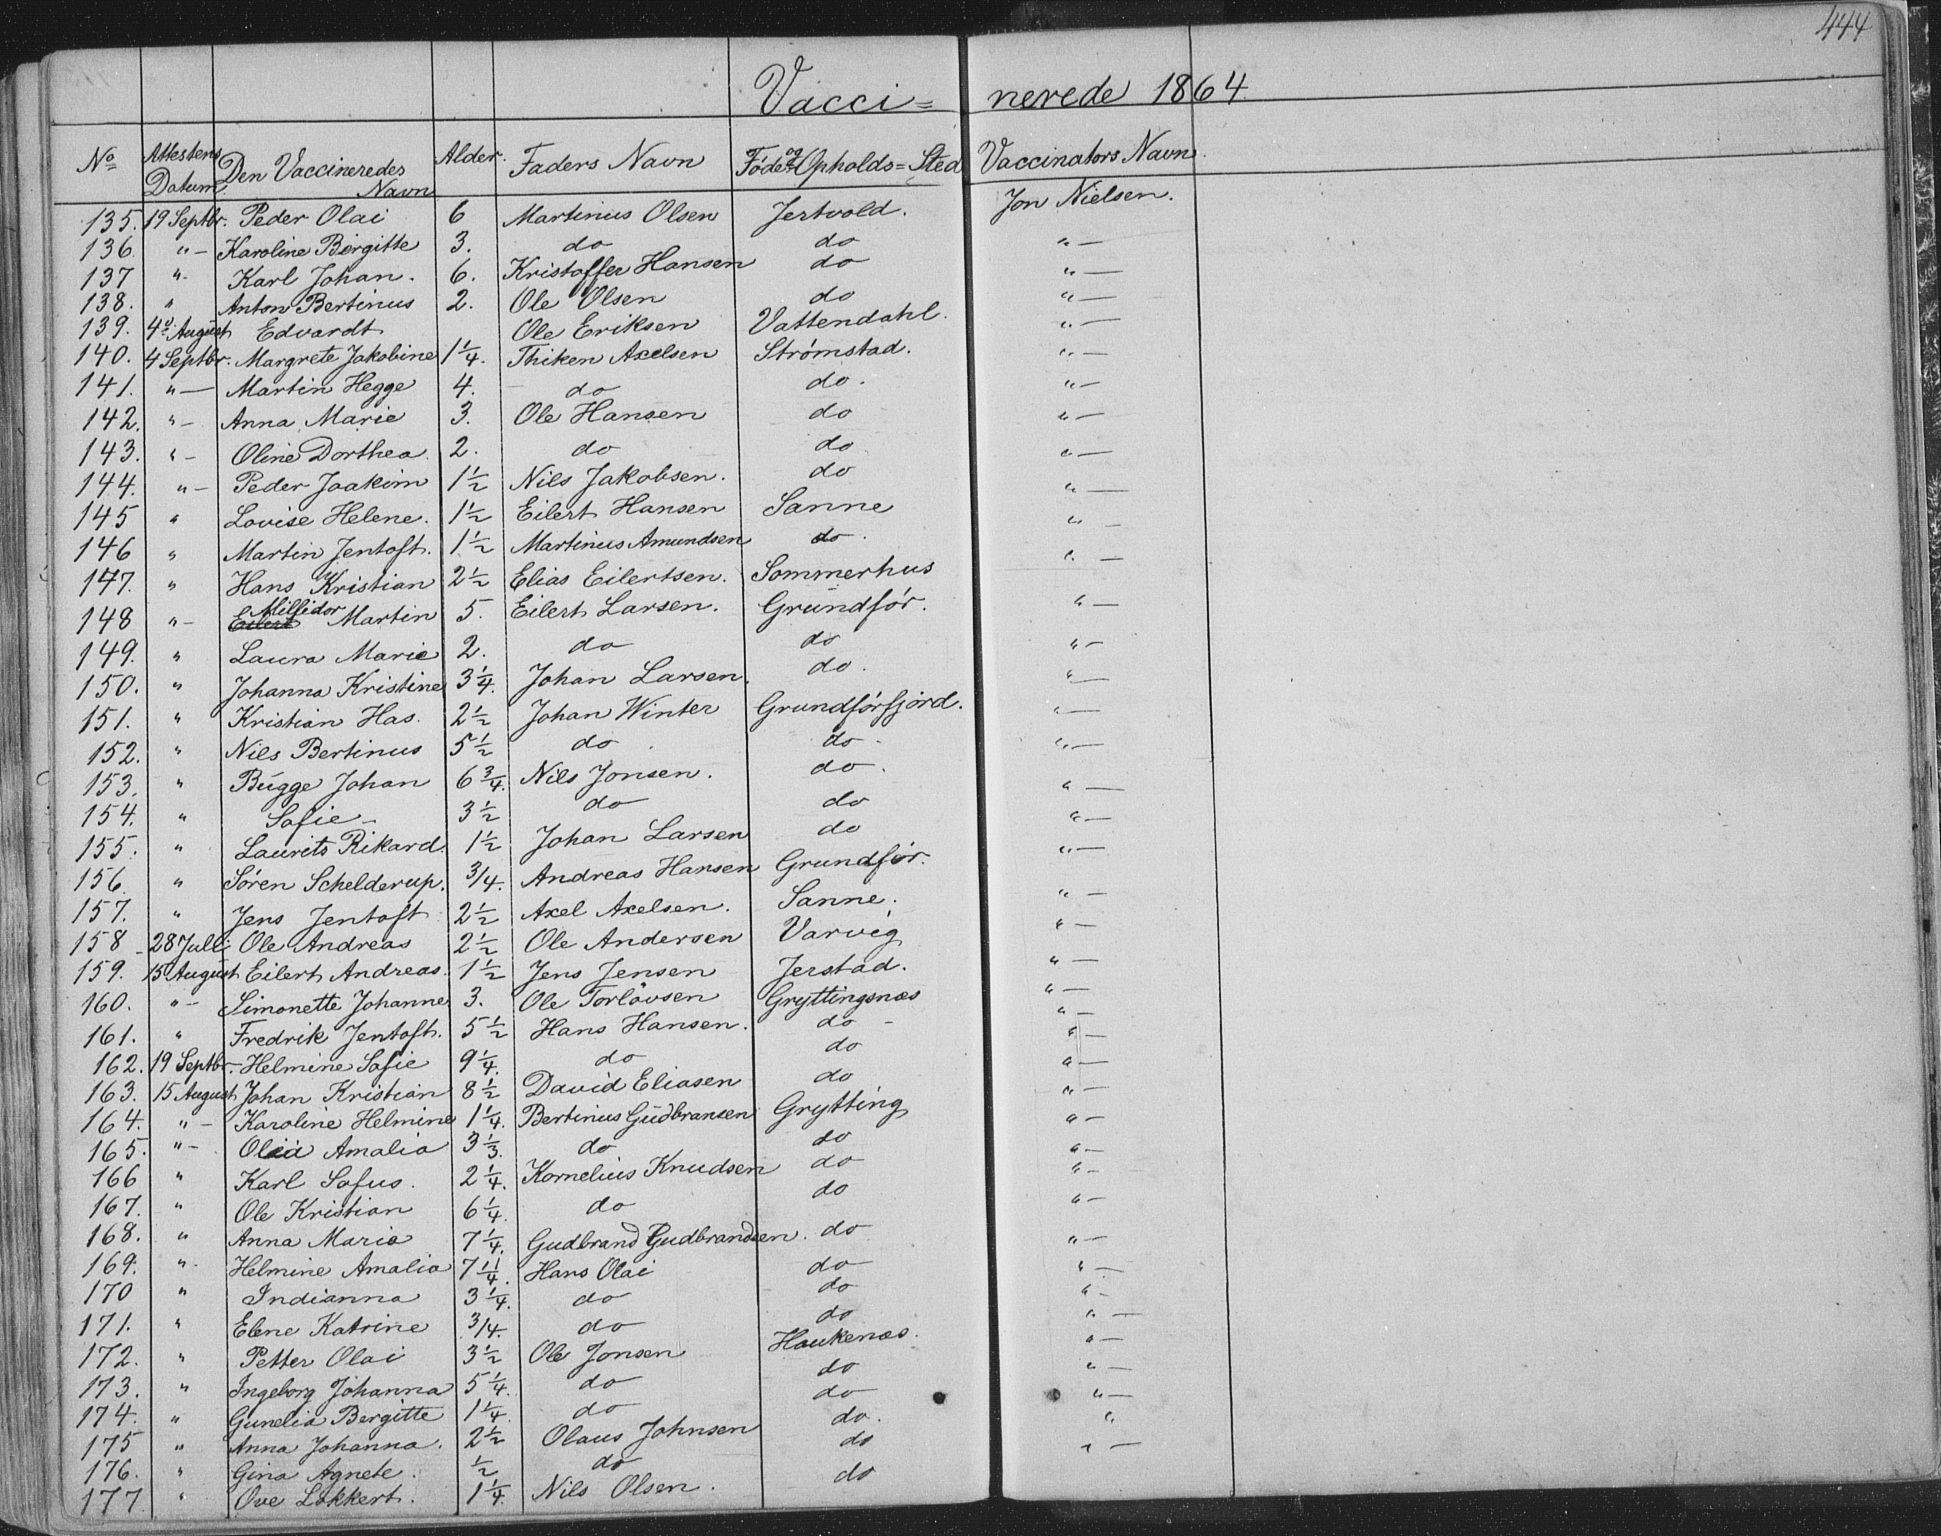 444
Vacci= nerede 1864
No Attestens Datum Den Vaccineredes Navn Alder. Faders Navn Føde og Opholds=Sted Vaccinators Navn.
135. 19 Septbr. Peder Olai 6 Martinus Olsen Jertvold. Jon Nielsen.
136 "- Karoline Bergitte 3. do do "-
137 "- Karl Johan. 6. Kristoffer Hansen do "-
138. " Anton Bertinus 2. Ole Olsen do "-
139. 4de August Edvardt Ole Eriksen Vattendahl. "-
140. 4 Septbr. Margrete Jakobine 1 1/4. Thiken Axelsen Strømstad. "-
141. "- Martin Hegge 4. do do. "-
142. "- Anna Marie 3. Ole Hansen do "-
143. "- Oline Dorthea 2. do do "-
144. "- Peder Joakim 1 1/2 Nils Jakobsen. do "-
145 " Lovise Helene. 1 1/2 Eilert Hansen Sanne "-
146 " Martin Jentoft. 1 1/2 Martinus Amundsen do. "-
147. " Hans Kristian 2 1/2 Elias Eilertsen. Sommerhus
148 "- Eilert Millidor Martin 5. Eilert Larsen. Grundfør. "-
149. " Laura Marie 2. do do "-
150. " Johanna Kristine 3 1/4. Johan Larsen. do. "-
151. " Kristian Has. 2 1/2 Johan Winter Grundførfjord. "-
152. " Nils Bertinus 5 1/2 do. do. "-
153. " Bugge Johan 6 3/4. Nils Jonsen. do. "-
154. " Sofie- 3 1/2 do do "-
155. " Laurits Rikard. 1 1/2 Johan Larsen do "-
156. " Søren Schelderup. 3/4. Andreas Hansen Grundfør. "-
157. " Jens Jentoft 2 1/2 Axel Axelsen. Sanne. "-
158 28 Julli Ole Andreas 2 1/2 Ole Andersen Varvig "-
159. 15 August Eilert Andreas. 1 1/2 Jens Jensen Jerstad. "-
160. "- Simonette Johanne 3. Ole Torløvsen Gryttingsnæs "-
161. " Fredrik Jentoft. 5 1/2 Hans Hansen. do- "-
162. 19 Septbr.- Helmine Sofie 9 1/4. do do "-
163. 15 August Johan Kristian 8 1/2 David Eliasen do "-
164. "- Karoline Helmine 1 1/4. Bertinus Gudbransen Grytting "-
165. "- Olea Amalia 3 1/3. do do "-
166 " Karl Sofus. 2 1/4. Kornelius Knudsen do "-
167. " Ole Kristian 6 1/4. do do "-
168. " Anna Maria 7 1/4. Gudbrand Gudbrandsen. do "-
169. "- Helmine Amalia 7 11/4. Hans Olai do "-
170 " Indianna 3 1/4. do do "-
171. " Elene Katrine 3/4. do do "-
172. " Petter Olai 3 1/2 Ole Jonsen Haukenæs. "-
173. " Ingeborg Johanna 5 1/4. do do "-
174. " Gunelia Bergitte 1 1/4. do do "-
175 " Anna Johanna. 2 1/2 Olaus Johnsen do. "
176. " Gina Agnete. 1/2 do do "-
177 " Ove Lokkert. 1 1/4. Nils Olsen. do